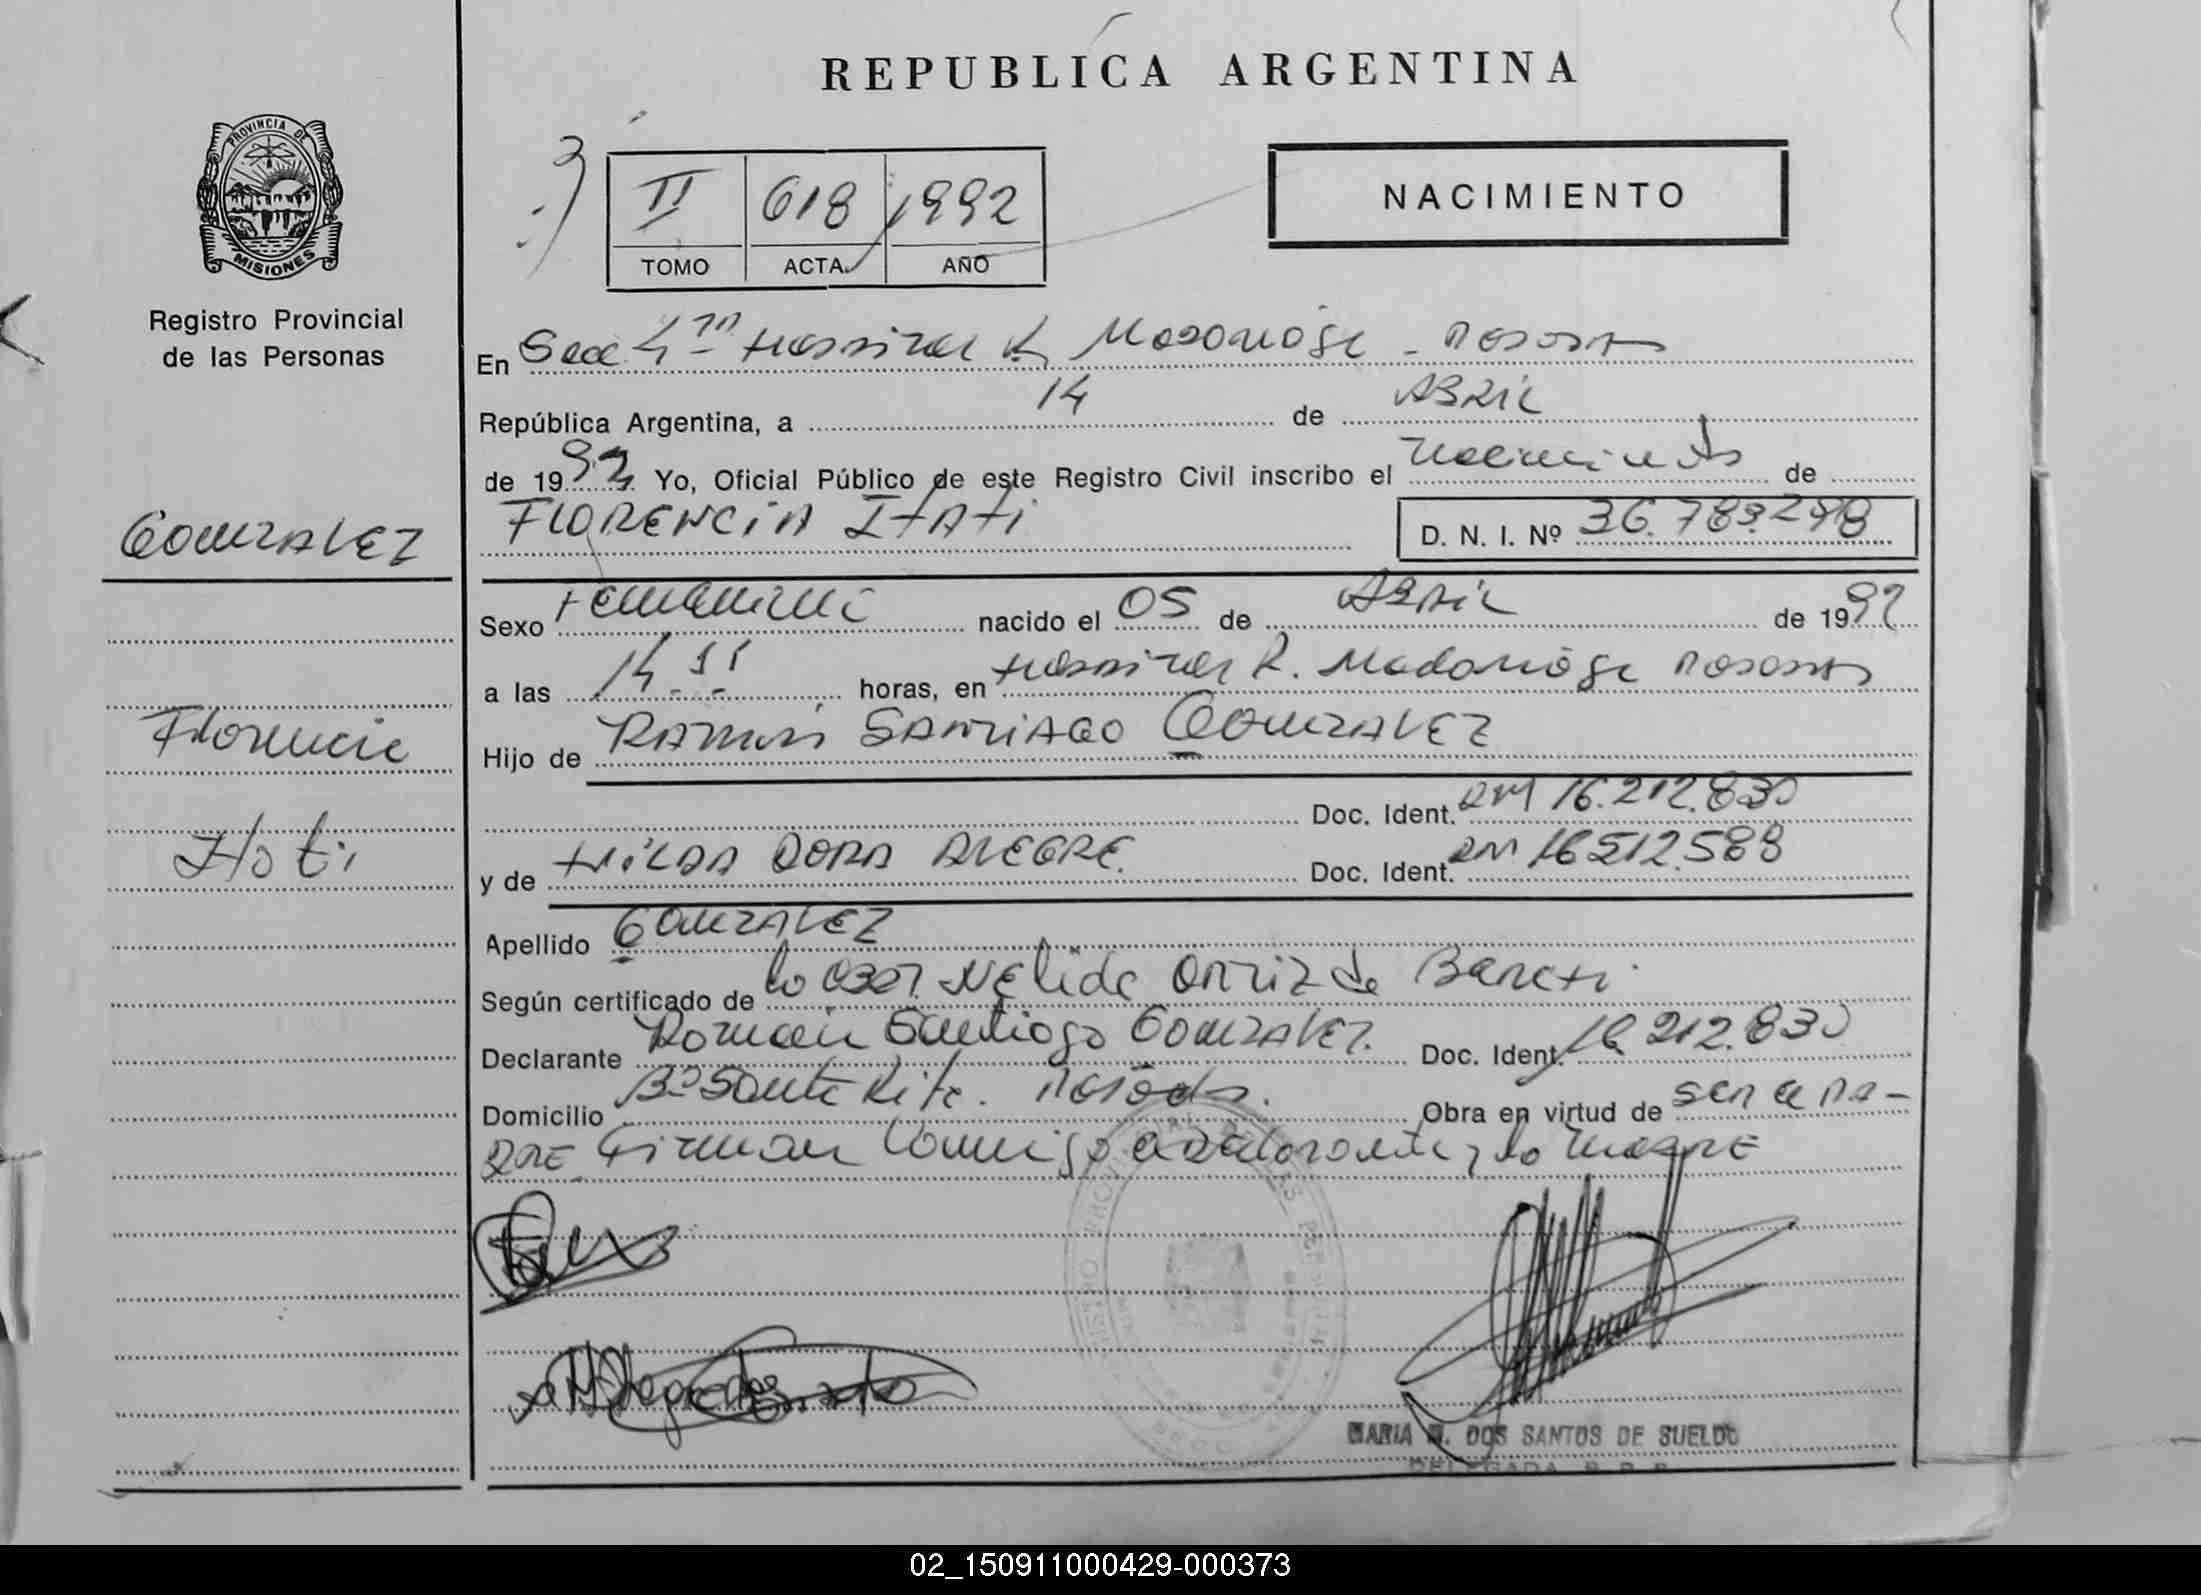 REPUBLICA ARGENTINA
PROVINCIA DE
MISIONES
Registro Provincial
de las Personas
II 618 1992
TOMO ACTA AÑO
NACIMIENTO
En Secc 4ta Hospital R. Madariaga - Posadas
República Argentina, a 14 de ABRIL
de 1992 Yo, Oficial Público de este Registro Civil inscribo el nacimiento de
FLORENCIA ITATI
D. N. I. Nº 36.789.298
GONZALEZ
Florencia
Itati
Sexo Femenino nacido el 05 de ABRIL de 1992
a las 14 horas, en Hospital R. Madariaga Posadas
Hijo de RAMON SANTIAGO GONZALEZ
Doc. Ident. DNI 16.212.830
y de HILDA DORA ALEGRE. Doc. Ident. DNI 16512.589
Apellido GONZALEZ
Según certificado de la obst. Nelida Ortiz de
Declarante Ramón Santiago GONZALEZ. Doc. Ident. 16.212.830
Domicilio Bº Santa Rita. Posadas. Obra en virtud de ser el PA-
DRE Firman conmigo el declarante y la MADRE
MARIA DOS SANTOS DE SUELDO
DELEGADA R. P. P.
02_150911000429-000373